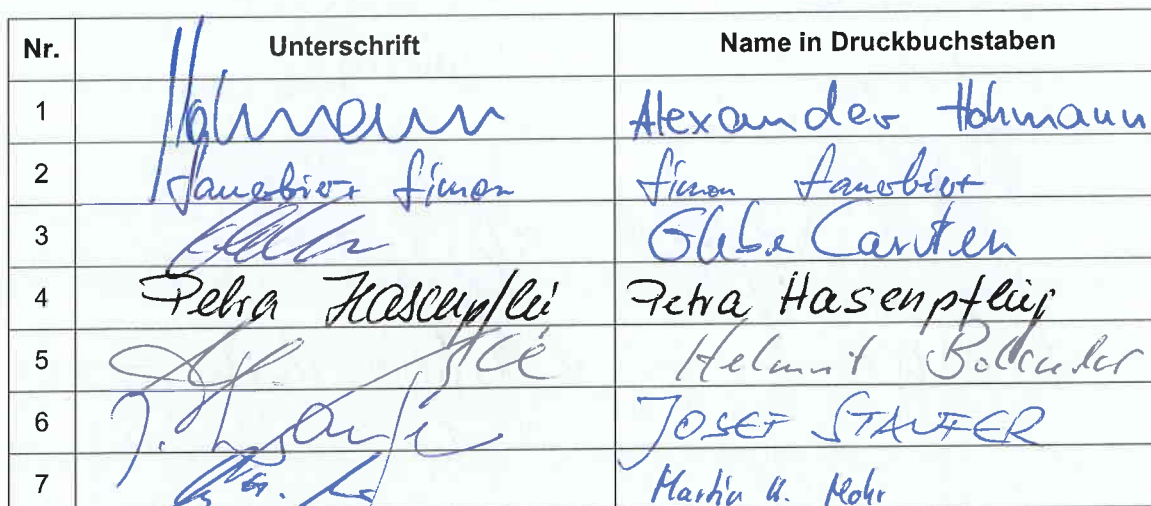 Nr. Unterschrift Name in Druckbuchstaben
1 Hohmann Alexander Hohmann
2 Sauerbier Simon Simon Sauerbier
3 Carsten
4 Petra Hasenpflug Petra Hasenpflug
5 Helmut
6 J. JOSEF STAUFER
7 Martin H. Mohr